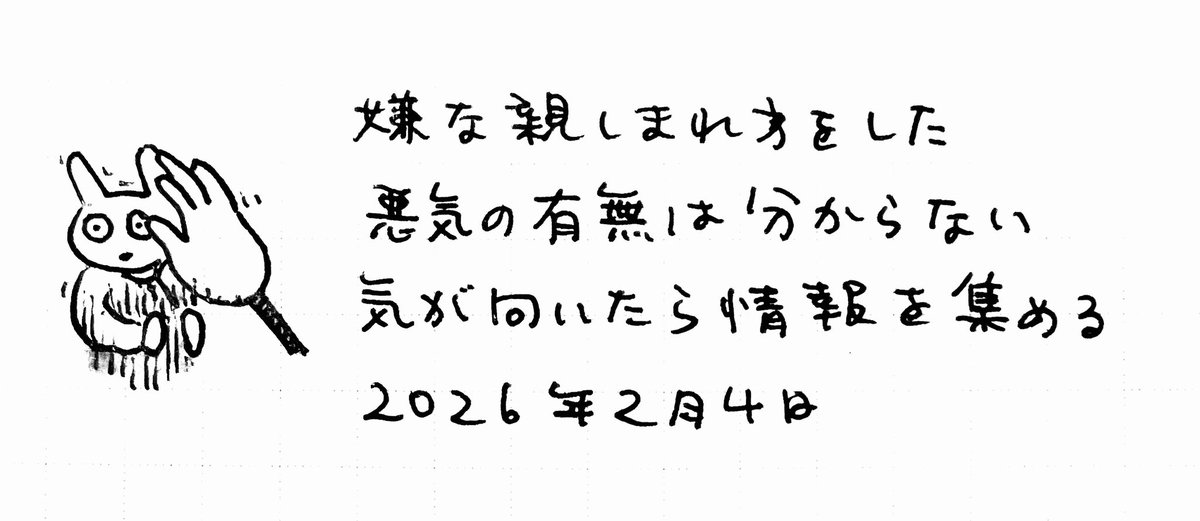 嫌な親しまれ方をした
悪気の有無は分からない
気が向いたら情報を集める
2026年2月4日